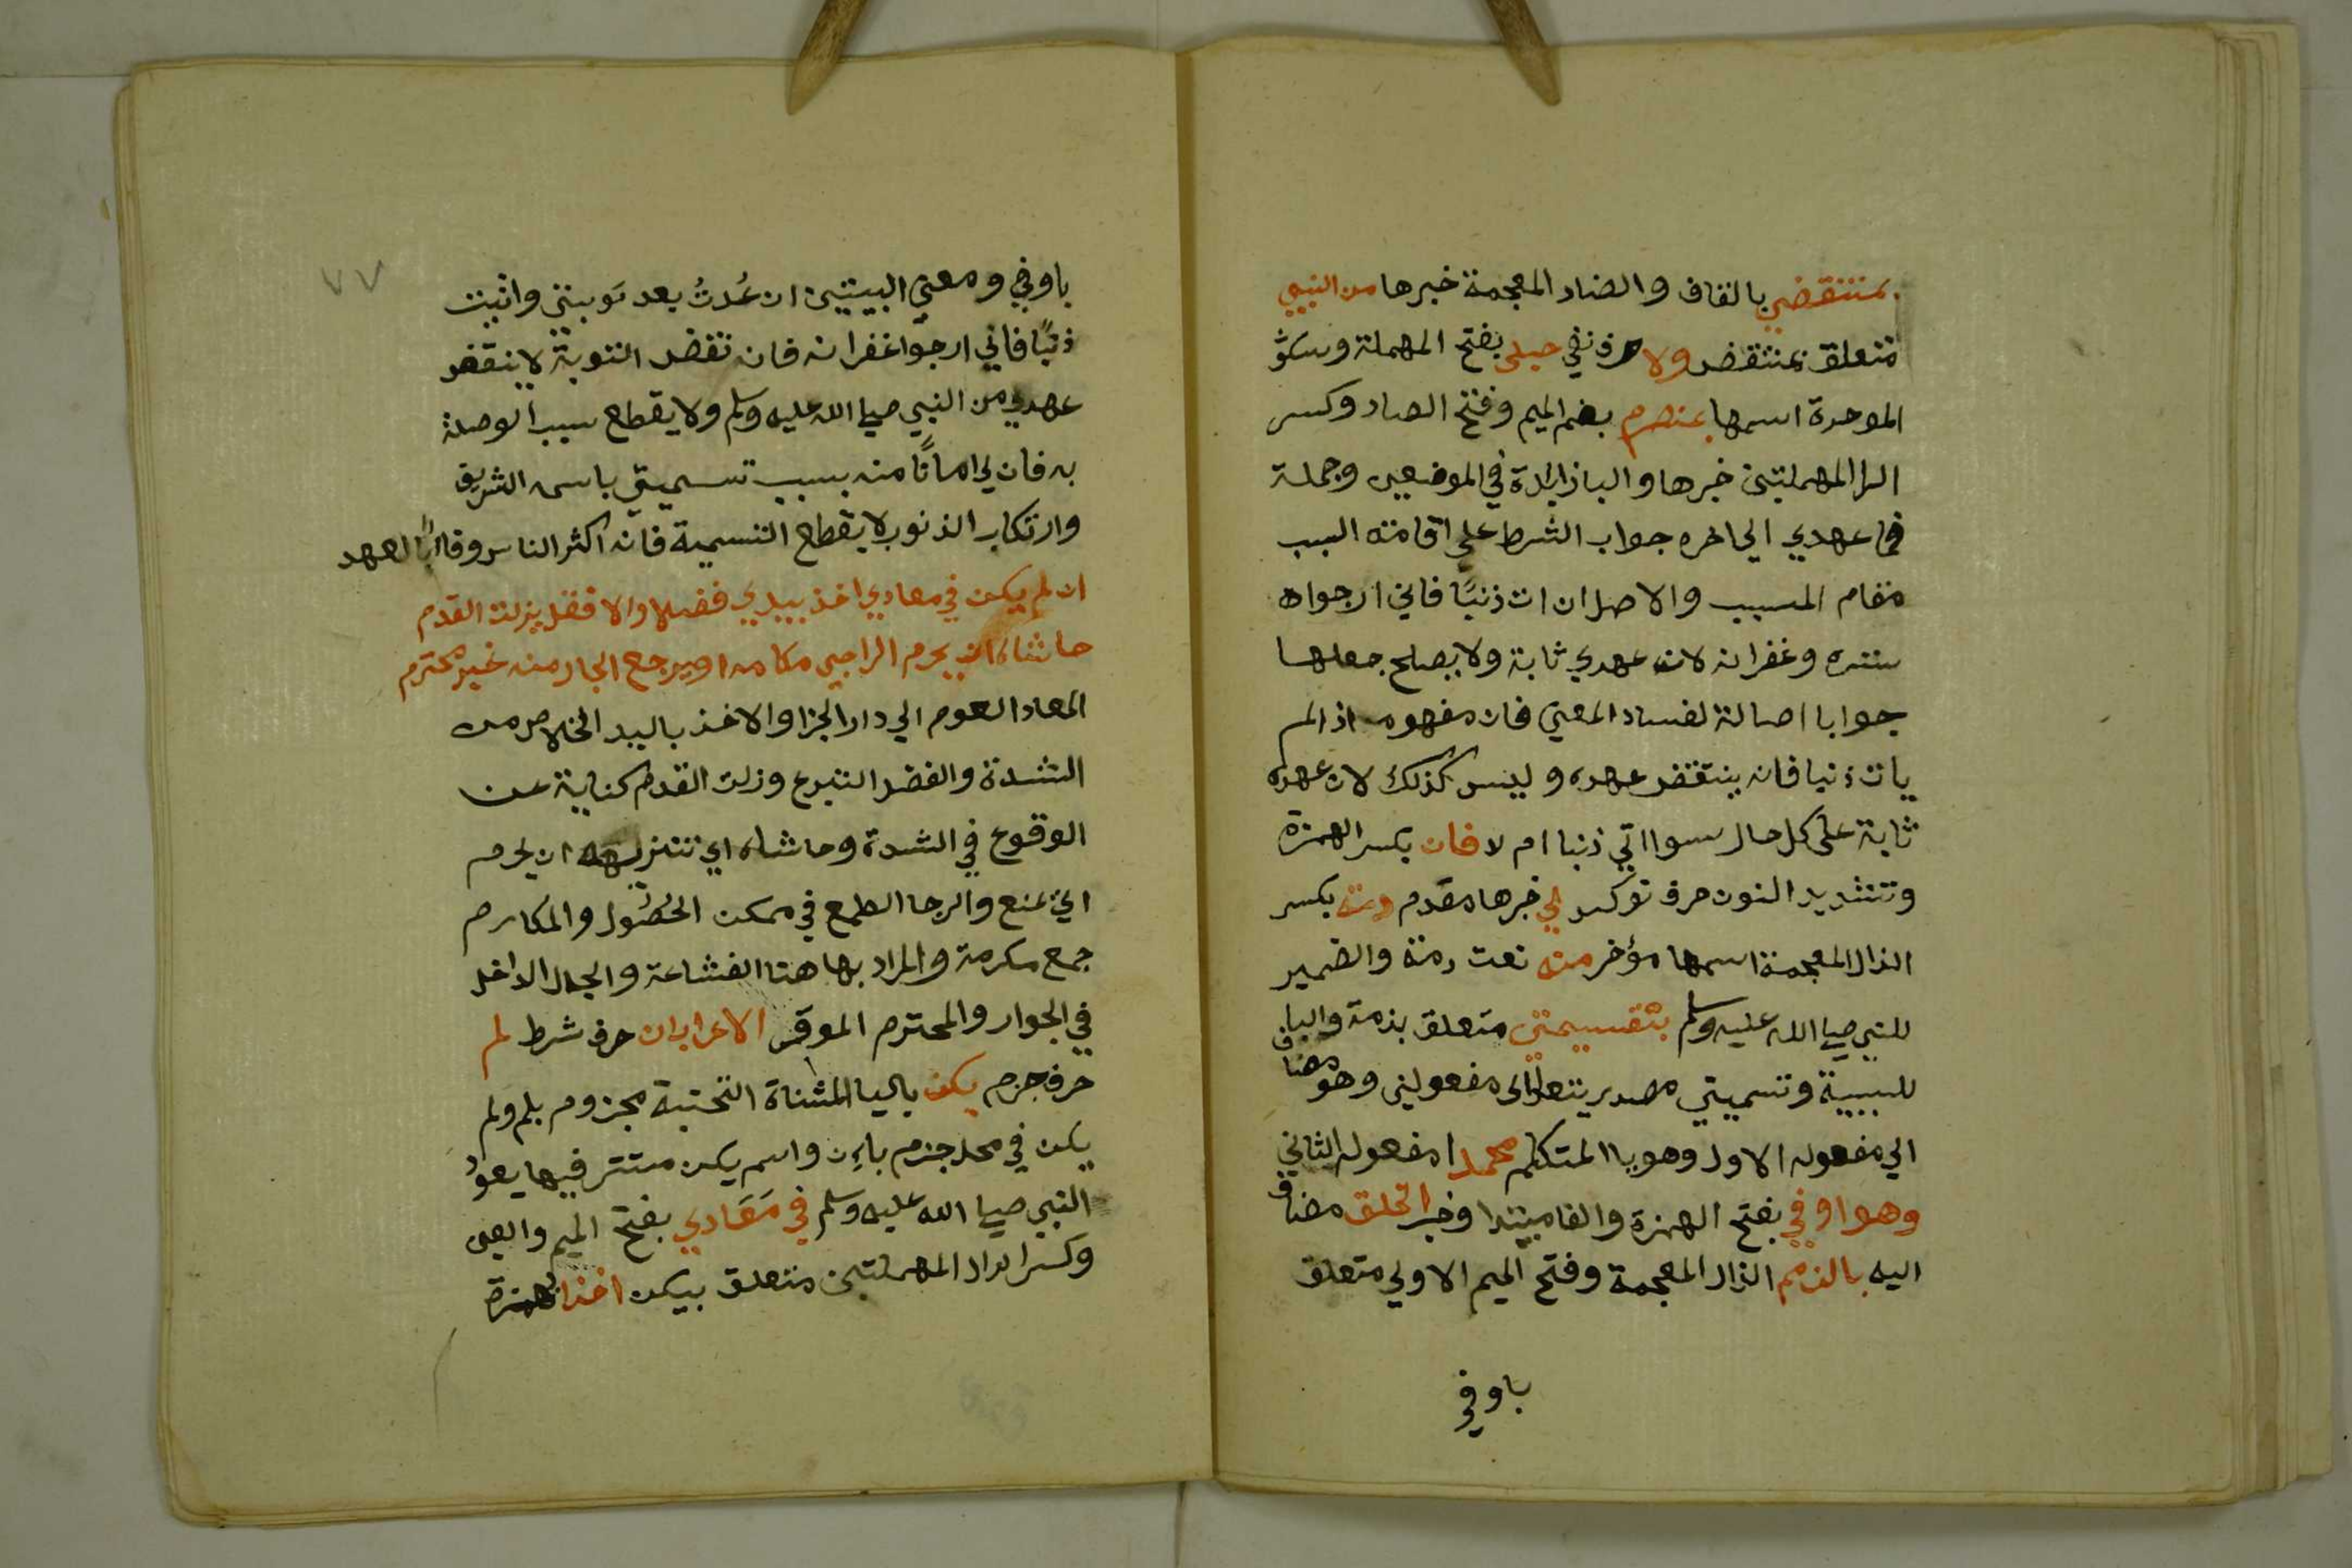 بمنتقض بالقاف والضاد المعجمة خبرها من النبي
متعلق بمنتقض ولا حرف نفي حبلي بفتح المهملة وسكون
الموحدة اسمها بمنصرم بضم الميم وفتح الصاد وكسر
الرا المهملتين خبرها والبا زايدة في الموضعين وجملة
فما عهدي الي اخره جواب الشرط علي اقامته السبب
مقام المسبب والاصل ان ات ذنبًا فاني ارجوا ه
ستره وغفرانه لان عهدي ثابة ولا يصلح جعلها
جوابا اصالة لفساد المعني فان مفهومه اذا لم
يات ذنبا فانه ينتقض عهده وليس كذلك لان عهده
ثابة على كل حال سوا اتي ذنبا ام لا فان بكسر الهمزة
وتشديد النون حرف توكيد لي خبرها مقدم ذمة بكسر
الذال المعجمة اسمها مؤخر منه نعت ذمة والضمير
للنبي صلي الله عليه وسلم بتسميتي متعلق بذمة والبا
للسببية وتسميتي مصدر يتعدي الى مفعولين وهو مضاف
الي مفعوله الاول وهو يا المتكلم محمدا مفعوله الثاني
وهو اوفي بفتح الهمزة والفا مبتدا وخبر الخلق مضاف
اليه بالذمم الذال المعجمة وفتح الميم الاولي متعلق
باوفي
٧٧
باوفي ومعني البيتين ان عُدتُ بعد توبتي واتيت
ذنبًا فاني ارجوا غفرانه فان نقض التوبة لا ينقض
عهدي من النبي صلي الله عليه وسلم ولا يقطع سبب الوصلة
به فان لي امانًا منه بسبب تسميتي باسمه الشريف
وارتكاب الذنوب لا يقطع التسمية فانه اكثر الناس وفاءً بالعهد
ان لم يكن في معادي اخذ بيدي فضلا والا فقل يزلت القدم
حاشاه ان يحرم الراجي مكارمه او يرجع الجار منه غير محترم
المعاد العود الي دار الجزا والاخذ باليد الخلاص من
الشدة والفضل التبرع وزلت القدم كناية عن
الوقوع في الشدة وحاشاه اي تنزيهه ان يحرم
اي يمنع والرجا الطمع في ممكن الحصُول والمكارم
جمع مكرمة والمراد بها هنا الشفاعة والجار الداخل
في الجوار والمحترم الموقر الاعراب ان حرف شرط لم
حرف جزم يكن باليا المثناة التحتية مجزوم بلم ولم
يكن في محل جزم بان واسم يكن مستتر فيها يعود
النبي صلي الله عليه وسلم في مَعَادي بفتح الميم والعين
وكسر الدال المهملتين متعلق بيكن اخذا بهمزة